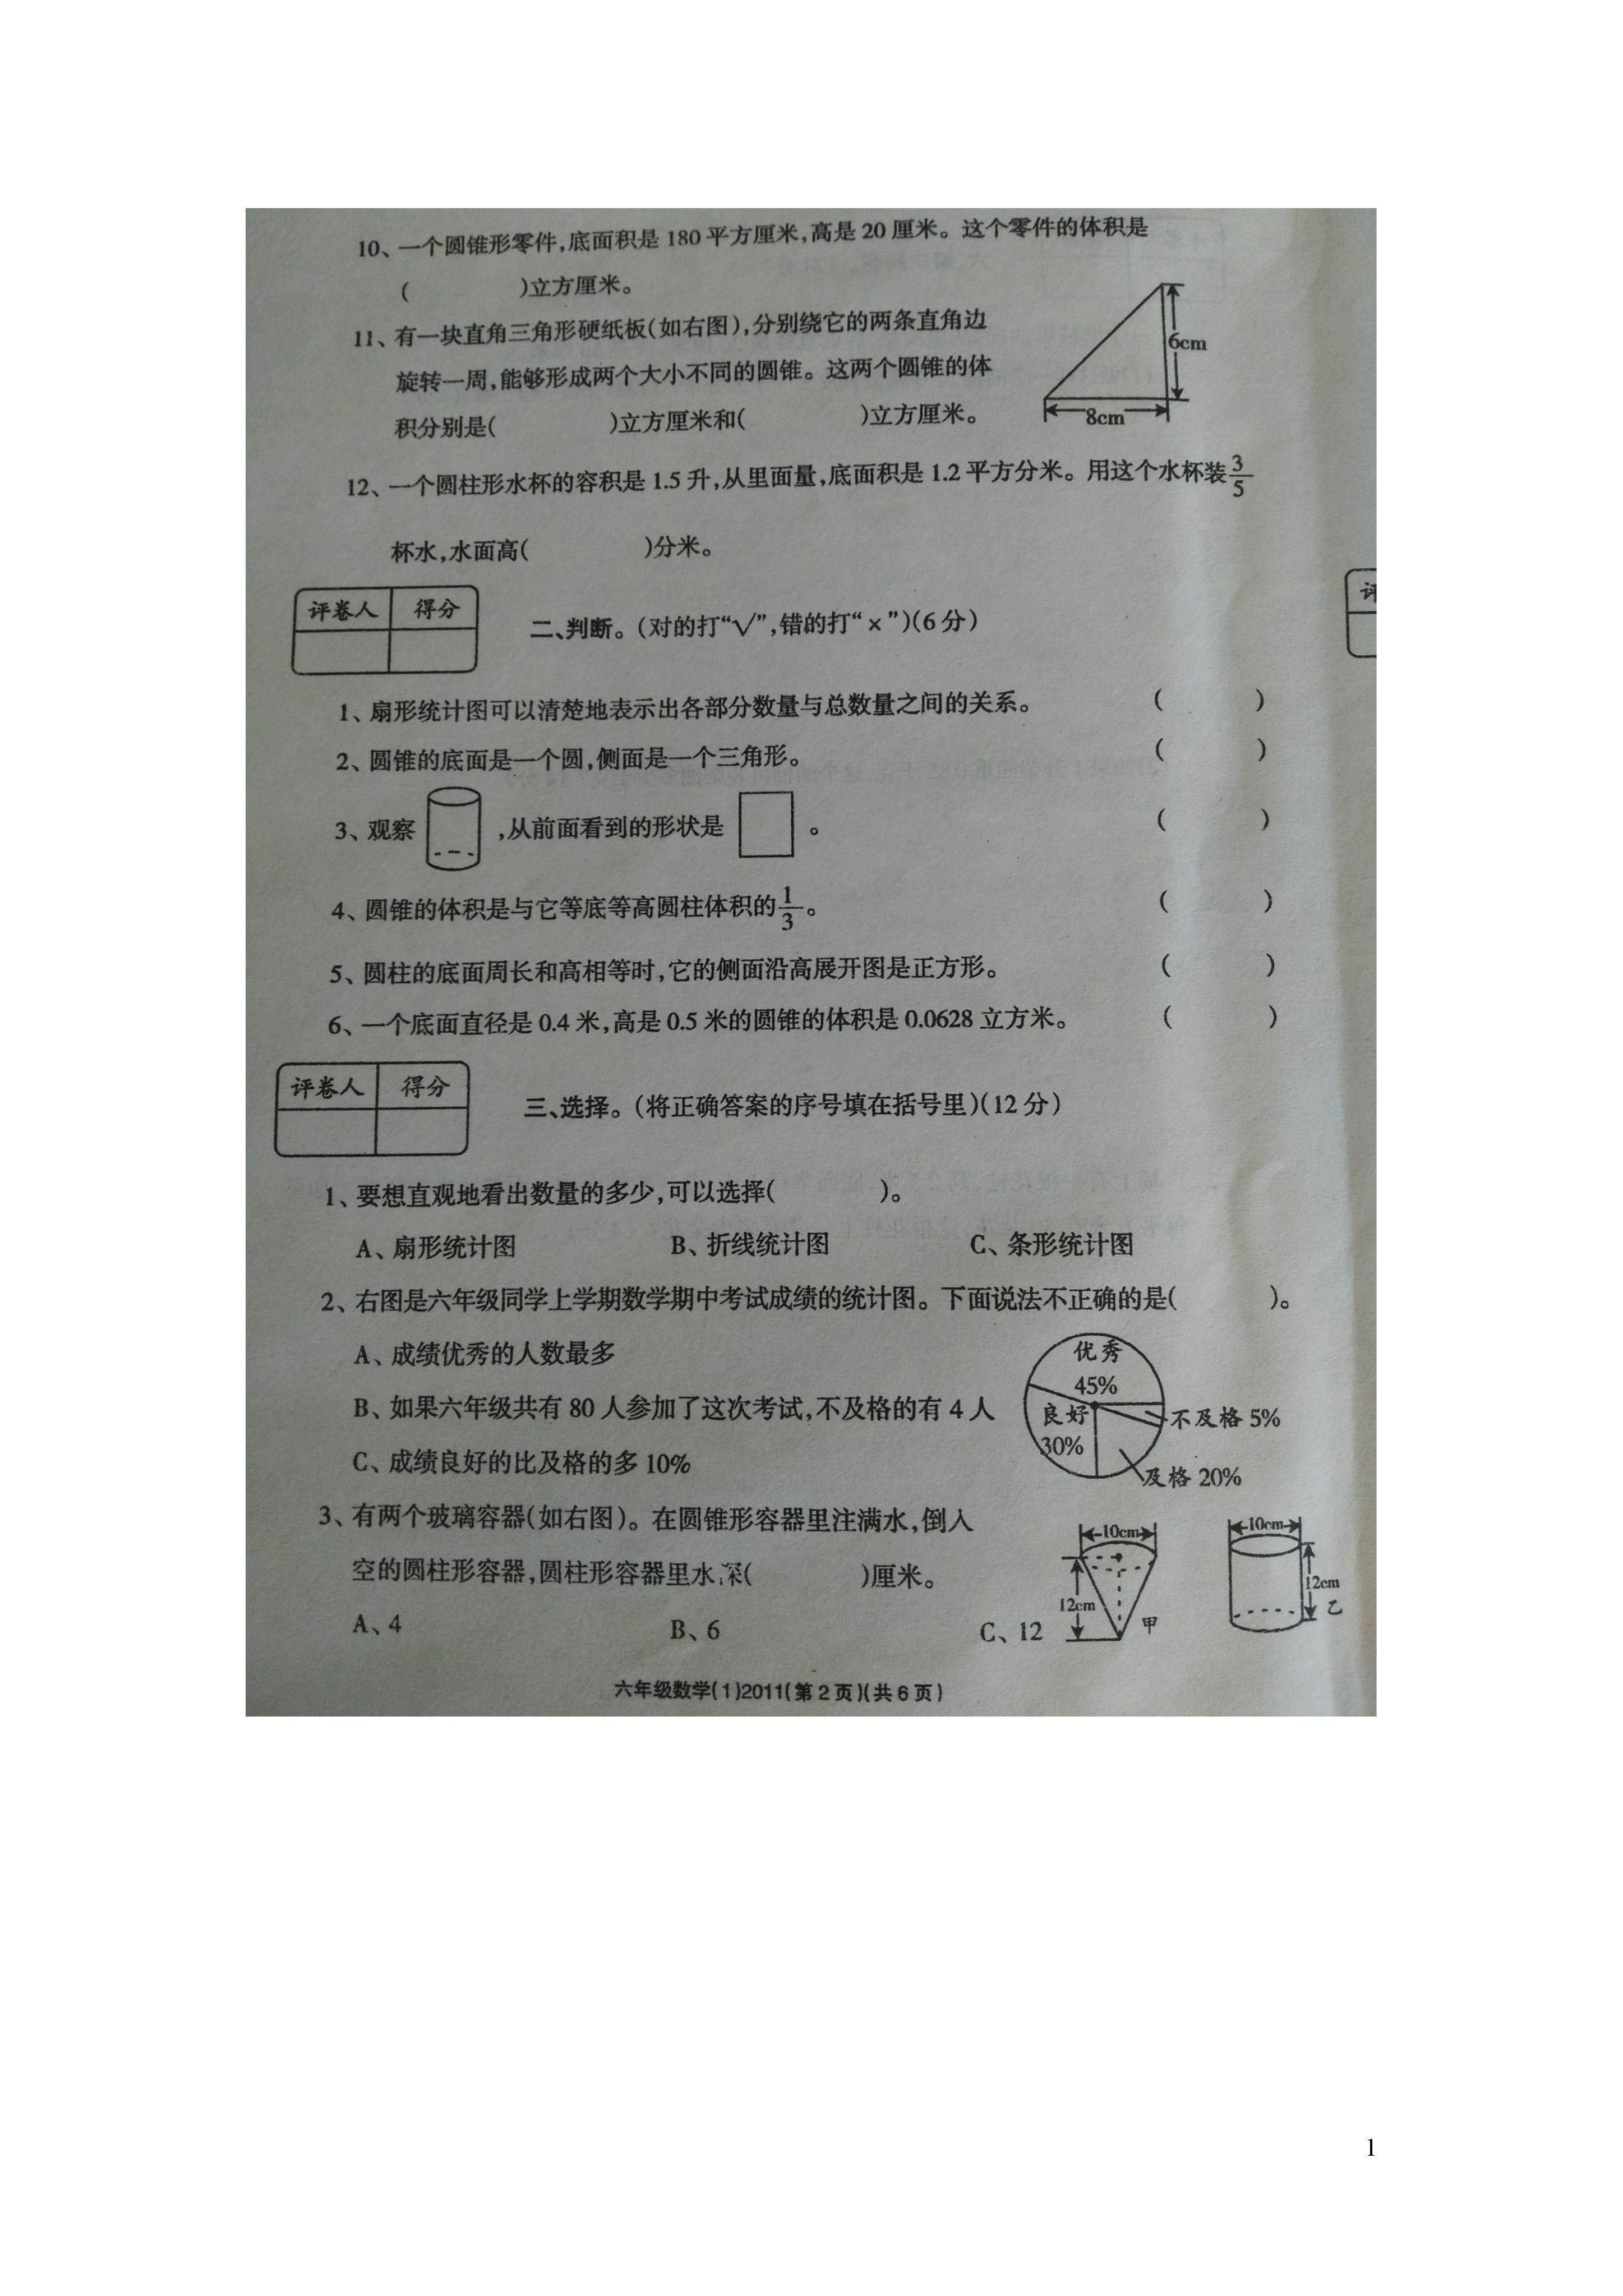 10、一个圆锥形零件,底面积是180平方厘米,高是20厘米。这个零件的体积是
( )立方厘米。
11、有一块直角三角形硬纸板(如右图),分别绕它的两条直角边
旋转一周,能够形成两个大小不同的圆锥。这两个圆锥的体
积分别是( )立方厘米和( )立方厘米。
6cm
8cm
12、一个圆柱形水杯的容积是1.5升,从里面量,底面积是1.2平方分米。用这个水杯装3/5
杯水,水面高( )分米。
评卷人 得分
二、判断。(对的打“√”,错的打“×”)(6分)
评
1、扇形统计图可以清楚地表示出各部分数量与总数量之间的关系。 ( )
2、圆锥的底面是一个圆,侧面是一个三角形。 ( )
3、观察 ,从前面看到的形状是 。 ( )
4、圆锥的体积是与它等底等高圆柱体积的1/3。 ( )
5、圆柱的底面周长和高相等时,它的侧面沿高展开图是正方形。 ( )
6、一个底面直径是0.4米,高是0.5米的圆锥的体积是0.0628立方米。 ( )
评卷人 得分
三、选择。(将正确答案的序号填在括号里)(12分)
1、要想直观地看出数量的多少,可以选择( )。
A、扇形统计图 B、折线统计图 C、条形统计图
2、右图是六年级同学上学期数学期中考试成绩的统计图。下面说法不正确的是( )。
A、成绩优秀的人数最多
B、如果六年级共有80人参加了这次考试,不及格的有4人
C、成绩良好的比及格的多10%
优秀
45%
良好
30%
不及格5%
及格20%
3、有两个玻璃容器(如右图)。在圆锥形容器里注满水,倒入
空的圆柱形容器,圆柱形容器里水深( )厘米。
A、4 B、6 C、12
10cm
12cm
甲
10cm
12cm
乙
六年级数学(1)2011(第2页)(共6页)
1